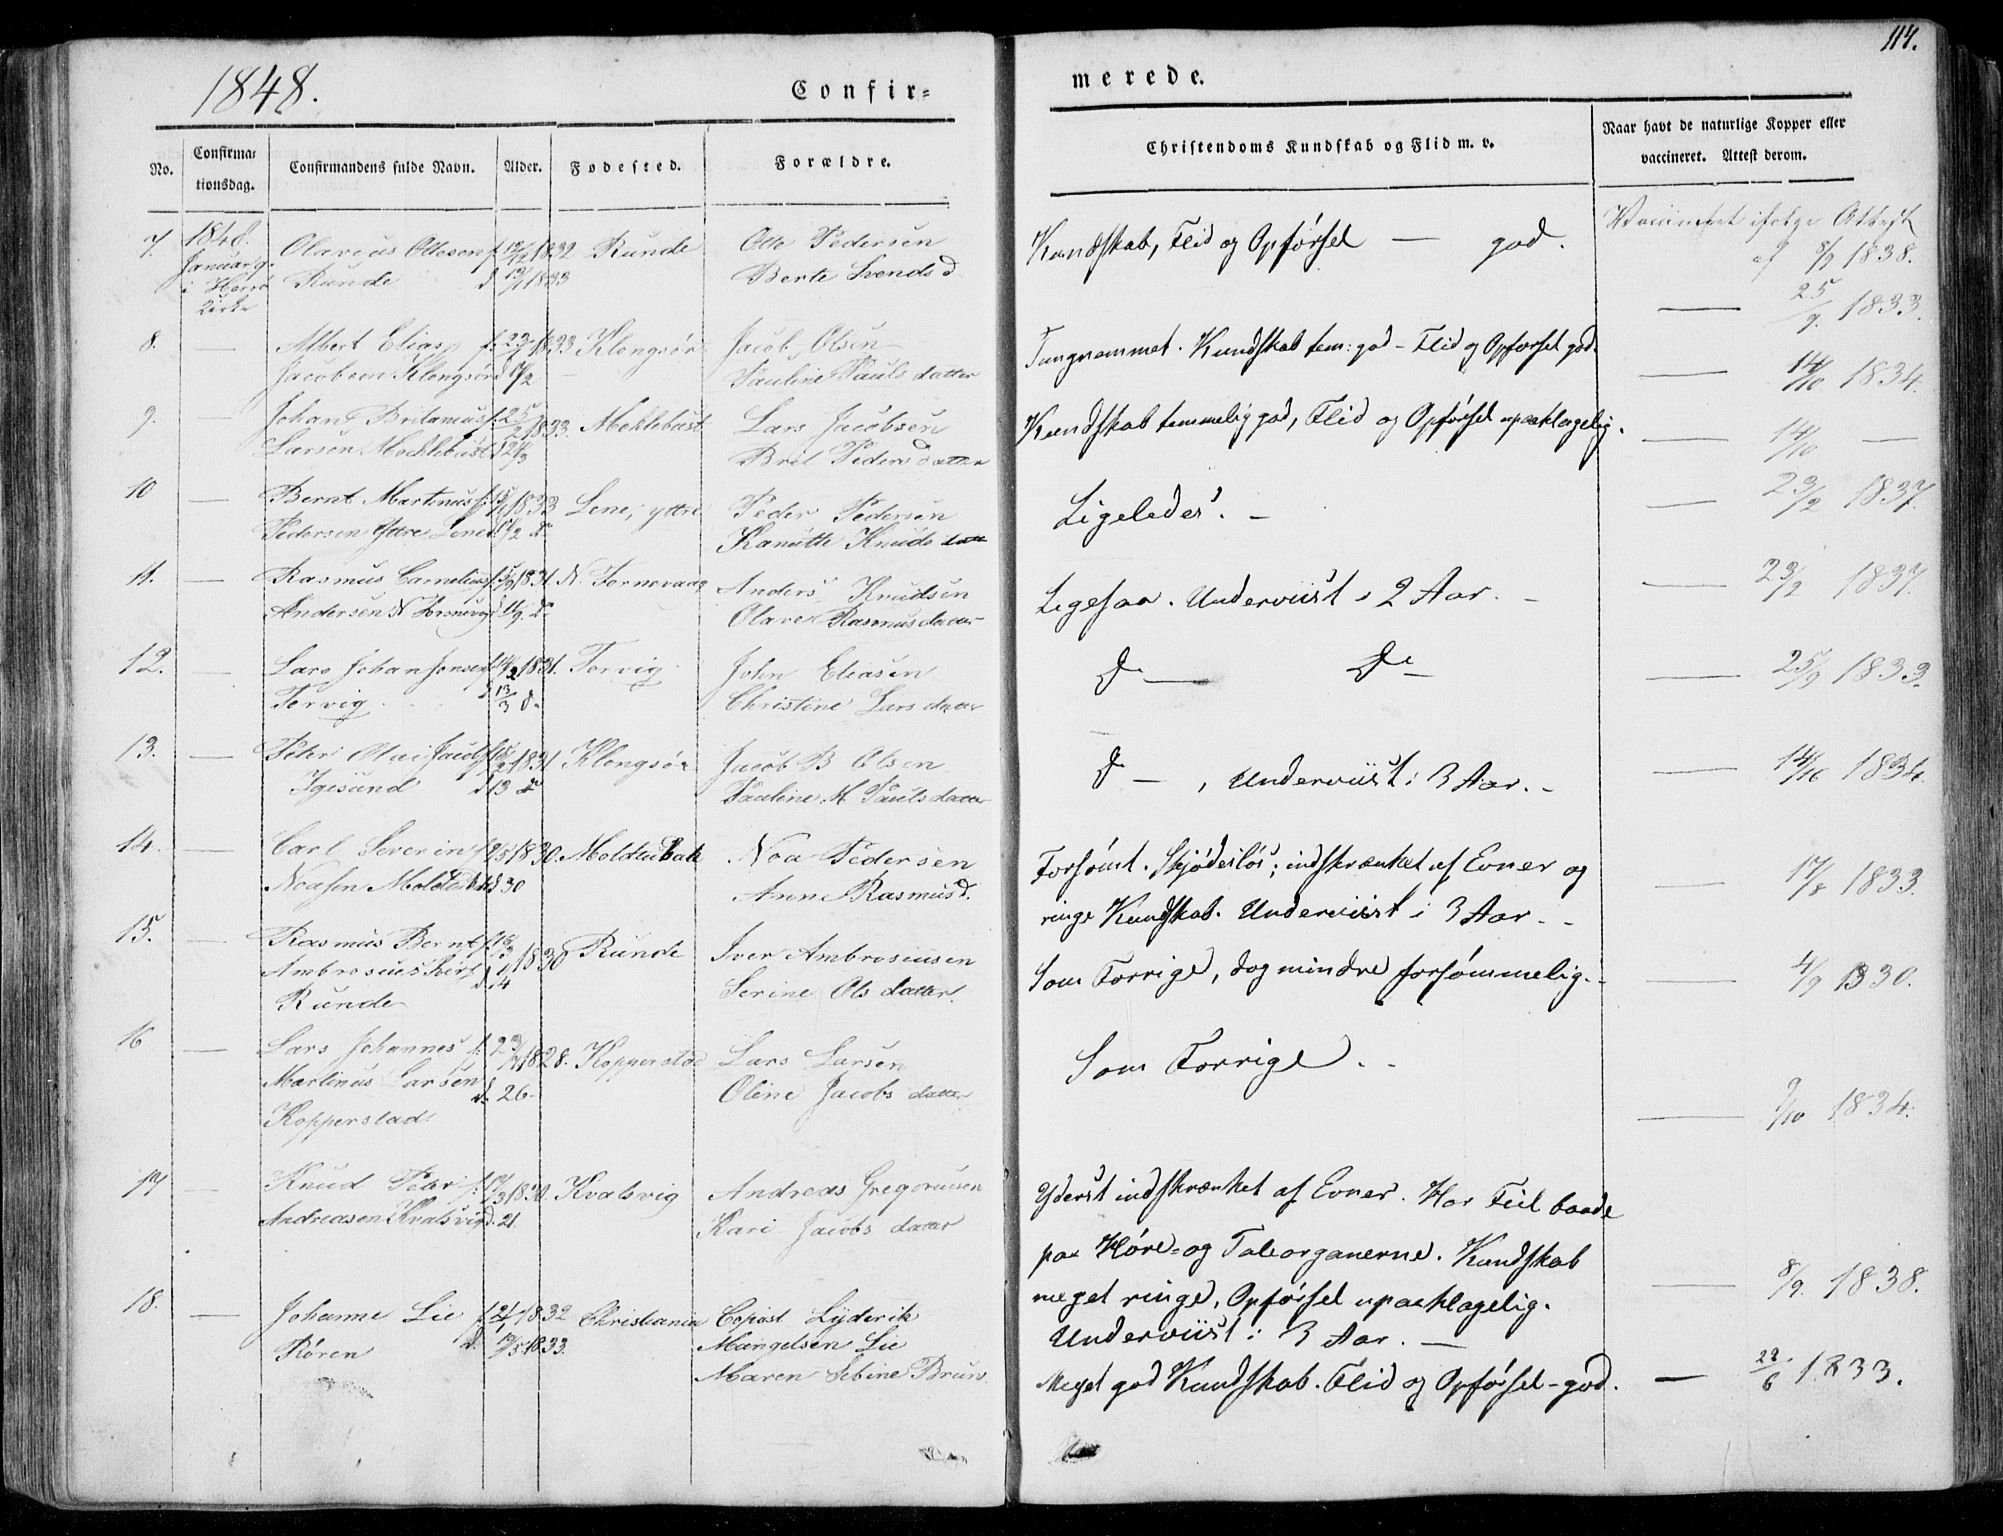 1848.
Confir=
merede.
114.
No.
Confirma=
tionsdag.
Confirmandens fulde Navn.
Alder.
Fødested.
Forældre.
Christendoms Kundskab og Flid m. v.
Naar havt de naturlige Kopper eller
vaccineret. Attest derom.
7. 1848. Olareus Ottesen f. 1832 Runde Otte Pedersen Kundskab, Flid og Opførsel — god. Vaccineret ifølge Attest
Januar 9. Runde d 1833 Berte Svendsd af 8/9 1838.
i Herø
Kirke
— 25/9. 1833.
8. — Albert Elias f. 1833 Klongsør Jacob Olsen Tungnemmet. Kundskab tem: god – Flid og Opførsel god.
Jacobsen Klongsør d Pauline Pauls datter — 14/10 1834.
9. — Johan Britanius f. 25/2 1833. Moklebust Lars Jacobsen Kundskab temmelig god, Flid og Opførsel upaaklagelig.
Larsen Moklebust d 24/3 Brit Peders datter — 14/10 —
10 — Bernt Martinus f. 1833 Lene, yttre Peder Pedersen Ligeledes. – — 23/2 1837.
Pedersen Yttre Lene d. Kanutte Knuds datt
11. — Rasmus Cornelius f. 1831. N. Tornevaag Anders Knudsen Ligesaa. Underviist i 2 Aar. – — 23/2 1837.
Andersen N d. Rasmusdatter
12. — Lars Johan Jonsen f. 14/2 1831. Torvig John Eliasen Do — Do — — 25/9 1833.
Torvig. d 13/3 do Christine Larsdatter
13. — Peter Olai Jacobs f. 1831 Klongsør Jacob B Olsen Do — , Underviist i 3 Aar. – — 14/10 1834.
Igesund d 13 Pauline M Paulsdatter
14. — Carl Severin f. 1830. Moldtubak Noa Pedersen Forsømt. Skjødesløs; indskrænket af Evner og — 17/8 1833.
Noasen d 30 Anne Rasmusd. ringe Kundskab. Underviist i 3 Aar. –
15. — Rasmus Bernt f. 1830 Runde Iver Ambrosiusen Som Forrige, dog mindre forsømmelig. – — 4/9 1830.
Ambrosius d. 4 Serine Olsdatter.
Runde
16 — Lars Johannes f. 1828. Kopperstad Lars Larsen Som Forrige. –
Martinus Larsen d. 26 – Oline Jacobs datter
Kopperstad — 9/10 1834.
17 — Knud Peter f. 1830. Kvalsvig Andreas Gregoriusen Yderst indskrænket af Evner. Har Feil baade
Andreasen Kvalsvig d. 21. Kari Jacobs datter paa Høre- og Taleorganerne. Kundskab
meget ringe, Opførsel upaaklagelig. — 8/9. 1838.
Underviist i 3 Aar. —
18. — Johanne Lie f. 1832 Christiania Copist Lyderik Meget god Kundskab. Flid og Opførsel – god. — 28/6 1833.
Røren d. 1833. Mangelsen Lie
Maren Sebine Brun.